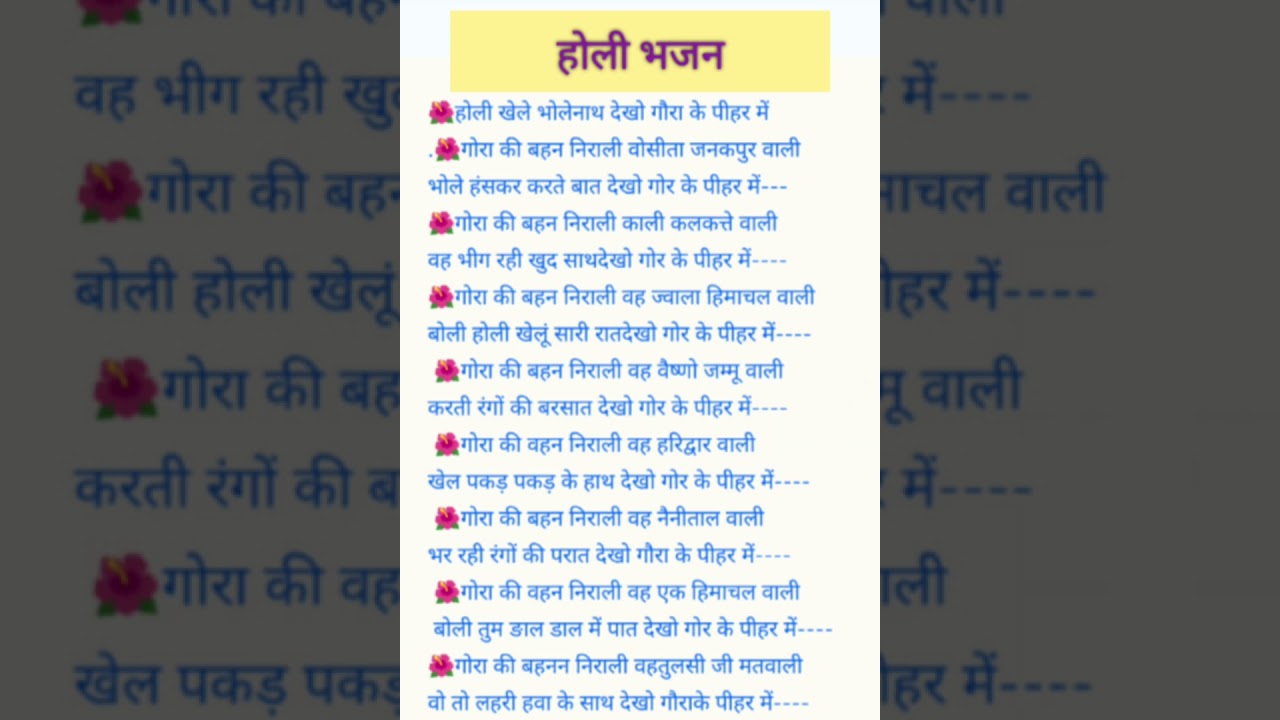 होली भजन
🌺होली खेले भोलेनाथ देखो गौरा के पीहर में
.🌺गोरा की बहन निराली वोसीता जनकपुर वाली
भोले हंसकर करते बात देखो गोर के पीहर में---
🌺गोरा की बहन निराली काली कलकत्ते वाली
वह भीग रही खुद साथदेखो गोर के पीहर में----
🌺गोरा की बहन निराली वह ज्वाला हिमाचल वाली
बोली होली खेलूं सारी रातदेखो गोर के पीहर में----
🌺गोरा की बहन निराली वह वैष्णो जम्मू वाली
करती रंगों की बरसात देखो गोर के पीहर में----
🌺गोरा की वहन निराली वह हरिद्वार वाली
खेल पकड़ पकड़ के हाथ देखो गोर के पीहर में----
🌺गोरा की बहन निराली वह नैनीताल वाली
भर रही रंगों की परात देखो गौरा के पीहर में----
🌺गोरा की वहन निराली वह एक हिमाचल वाली
बोली तुम ङाल डाल में पात देखो गोर के पीहर में----
🌺गोरा की बहनन निराली वहतुलसी जी मतवाली
वो तो लहरी हवा के साथ देखो गौराके पीहर में----